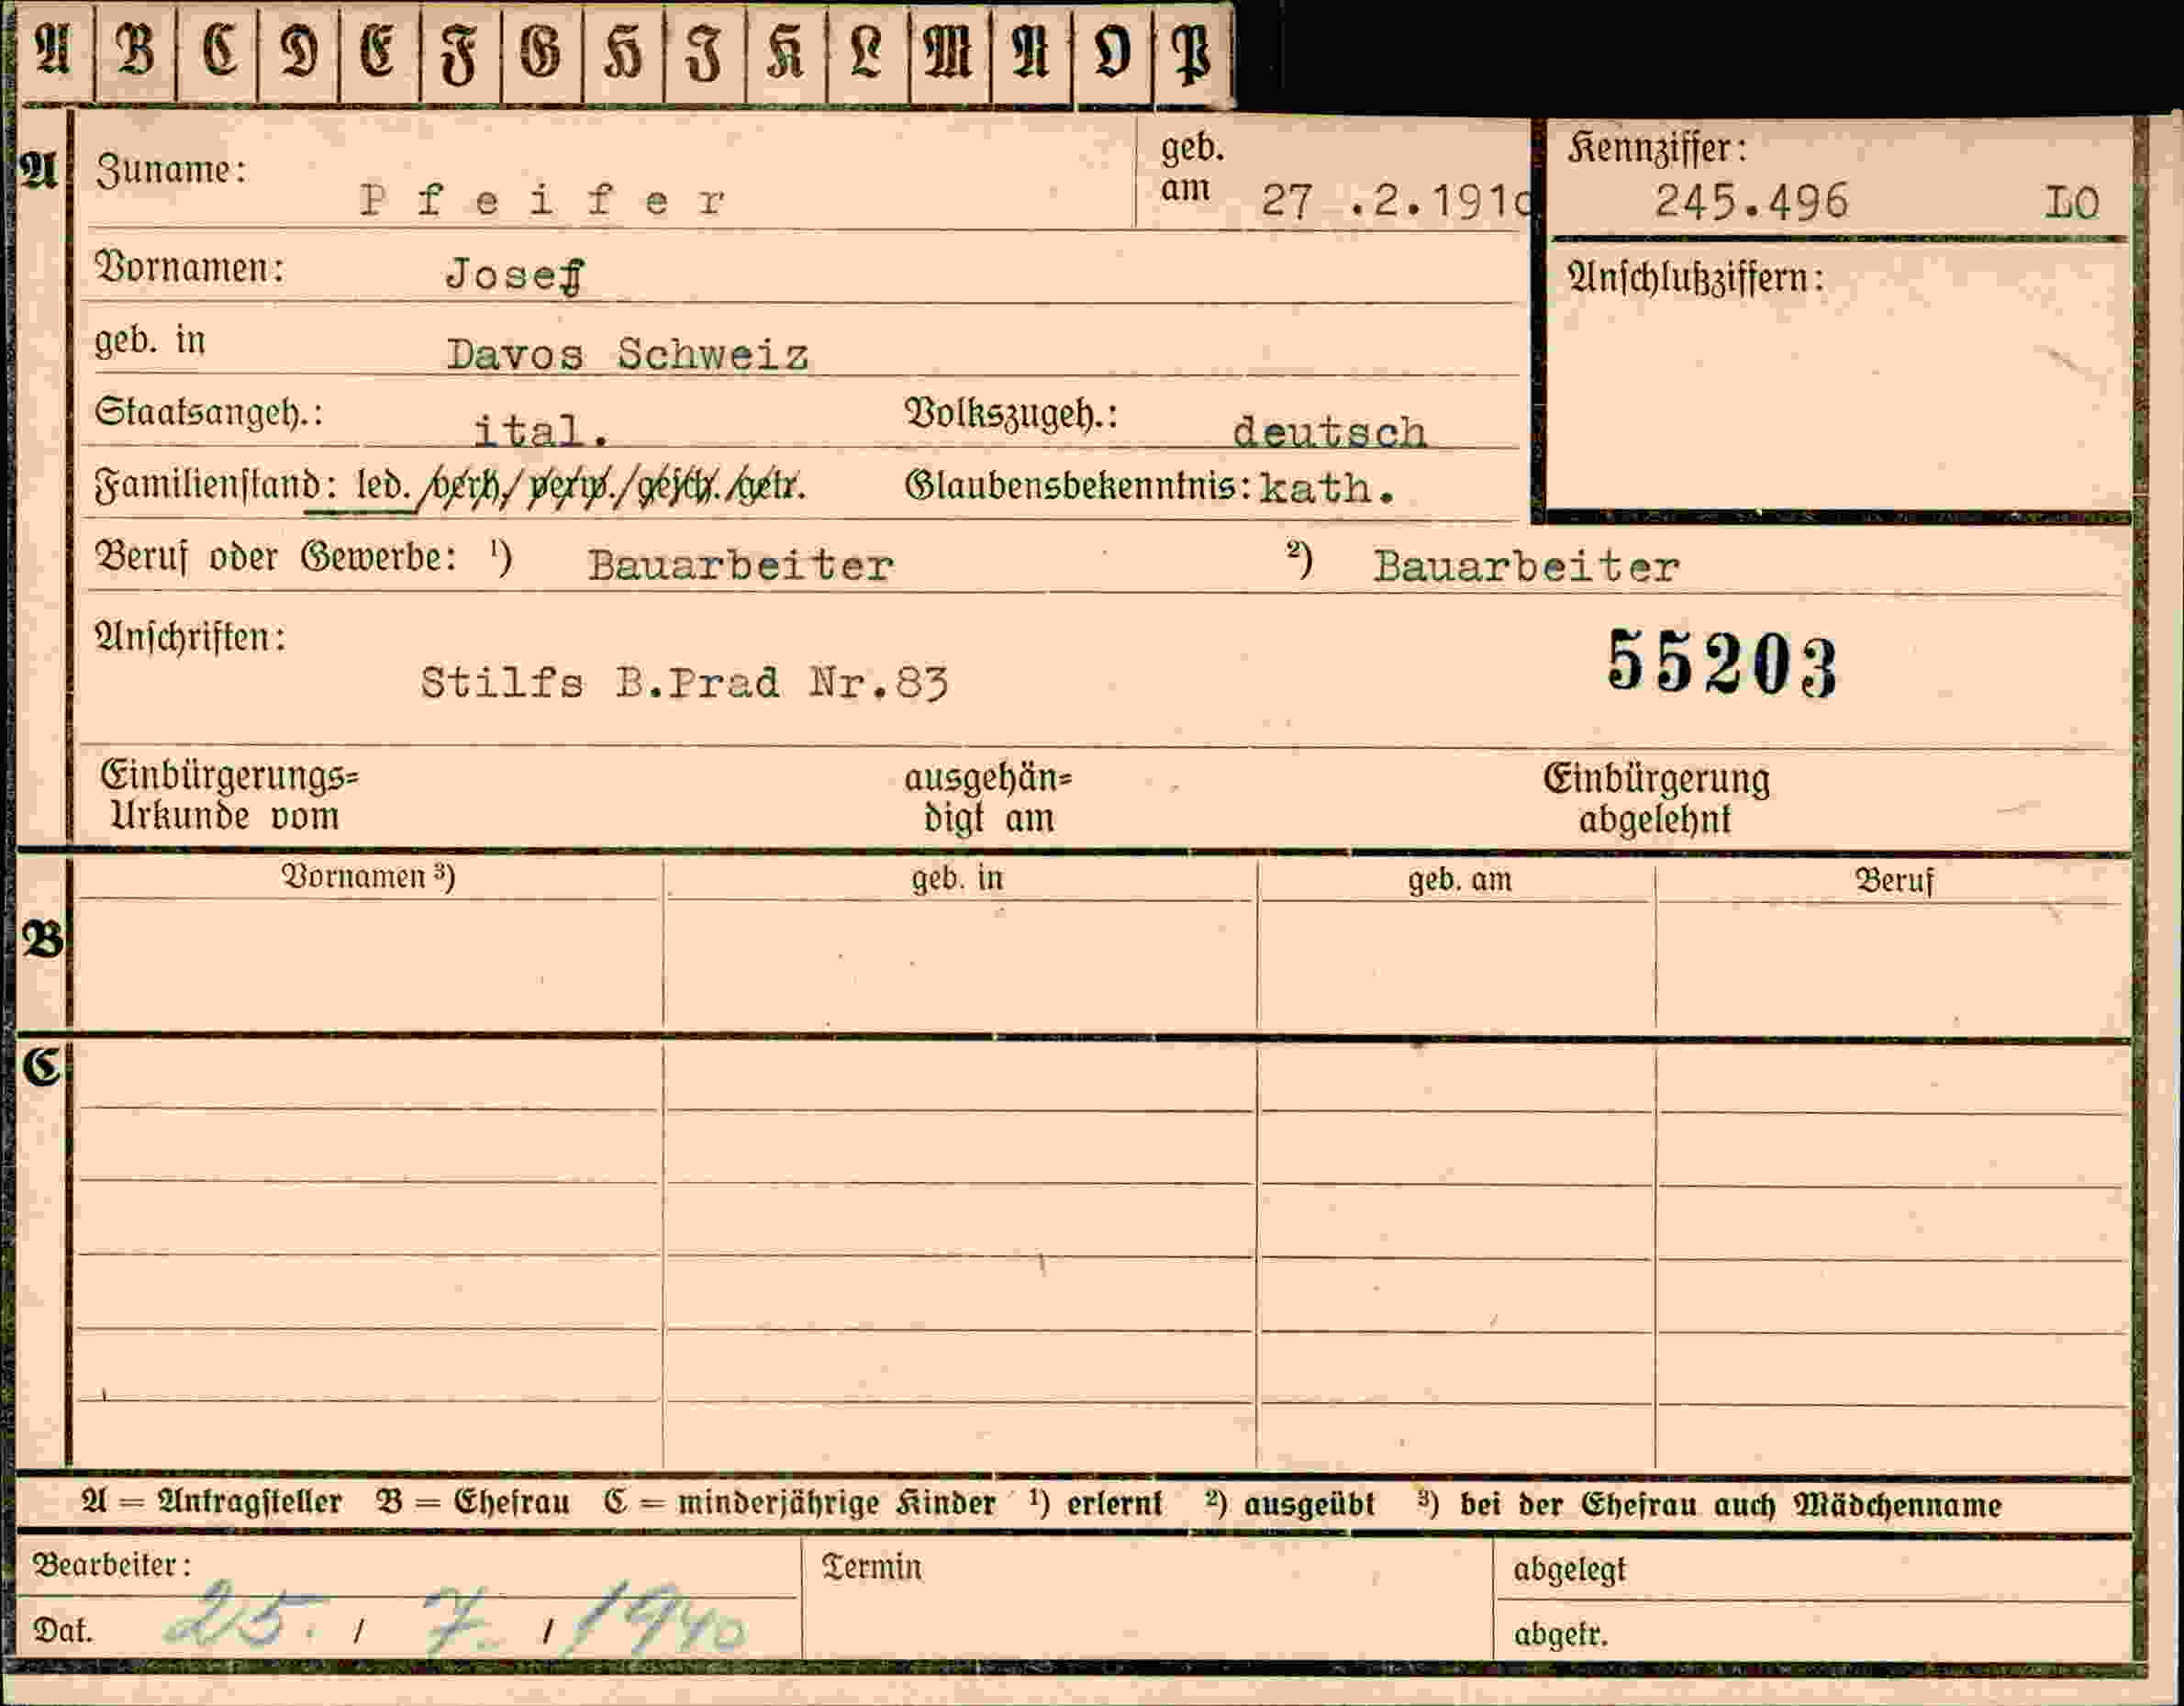 A B C D E F G H I K L M N O P
A Zuname: Pfeifer geb. am 27 .2.1910 Kennziffer: 245.496 LO
Vornamen: Josef Anschlußziffern:
geb. in Davos Schweiz
Staatsangeh.: ital. Volkszugeh.: deutsch
Familienstand: led./verh./verw./gesch./getr. Glaubensbekenntnis: kath.
Beruf oder Gewerbe: ¹) Bauarbeiter ²) Bauarbeiter
Anschriften: 55203
Stilfs B.Prad Nr.83
Einbürgerungs= ausgehän= Einbürgerung
Urkunde vom digt am abgelehnt
Vornamen ³) geb. in geb. am Beruf
B
C
A = Antragsteller B = Ehefrau C = minderjährige Kinder ¹) erlernt ²) ausgeübt ³) bei der Ehefrau auch Mädchenname
Bearbeiter: Termin abgelegt
Dat. 25. / 7. / 1940 abgetr.